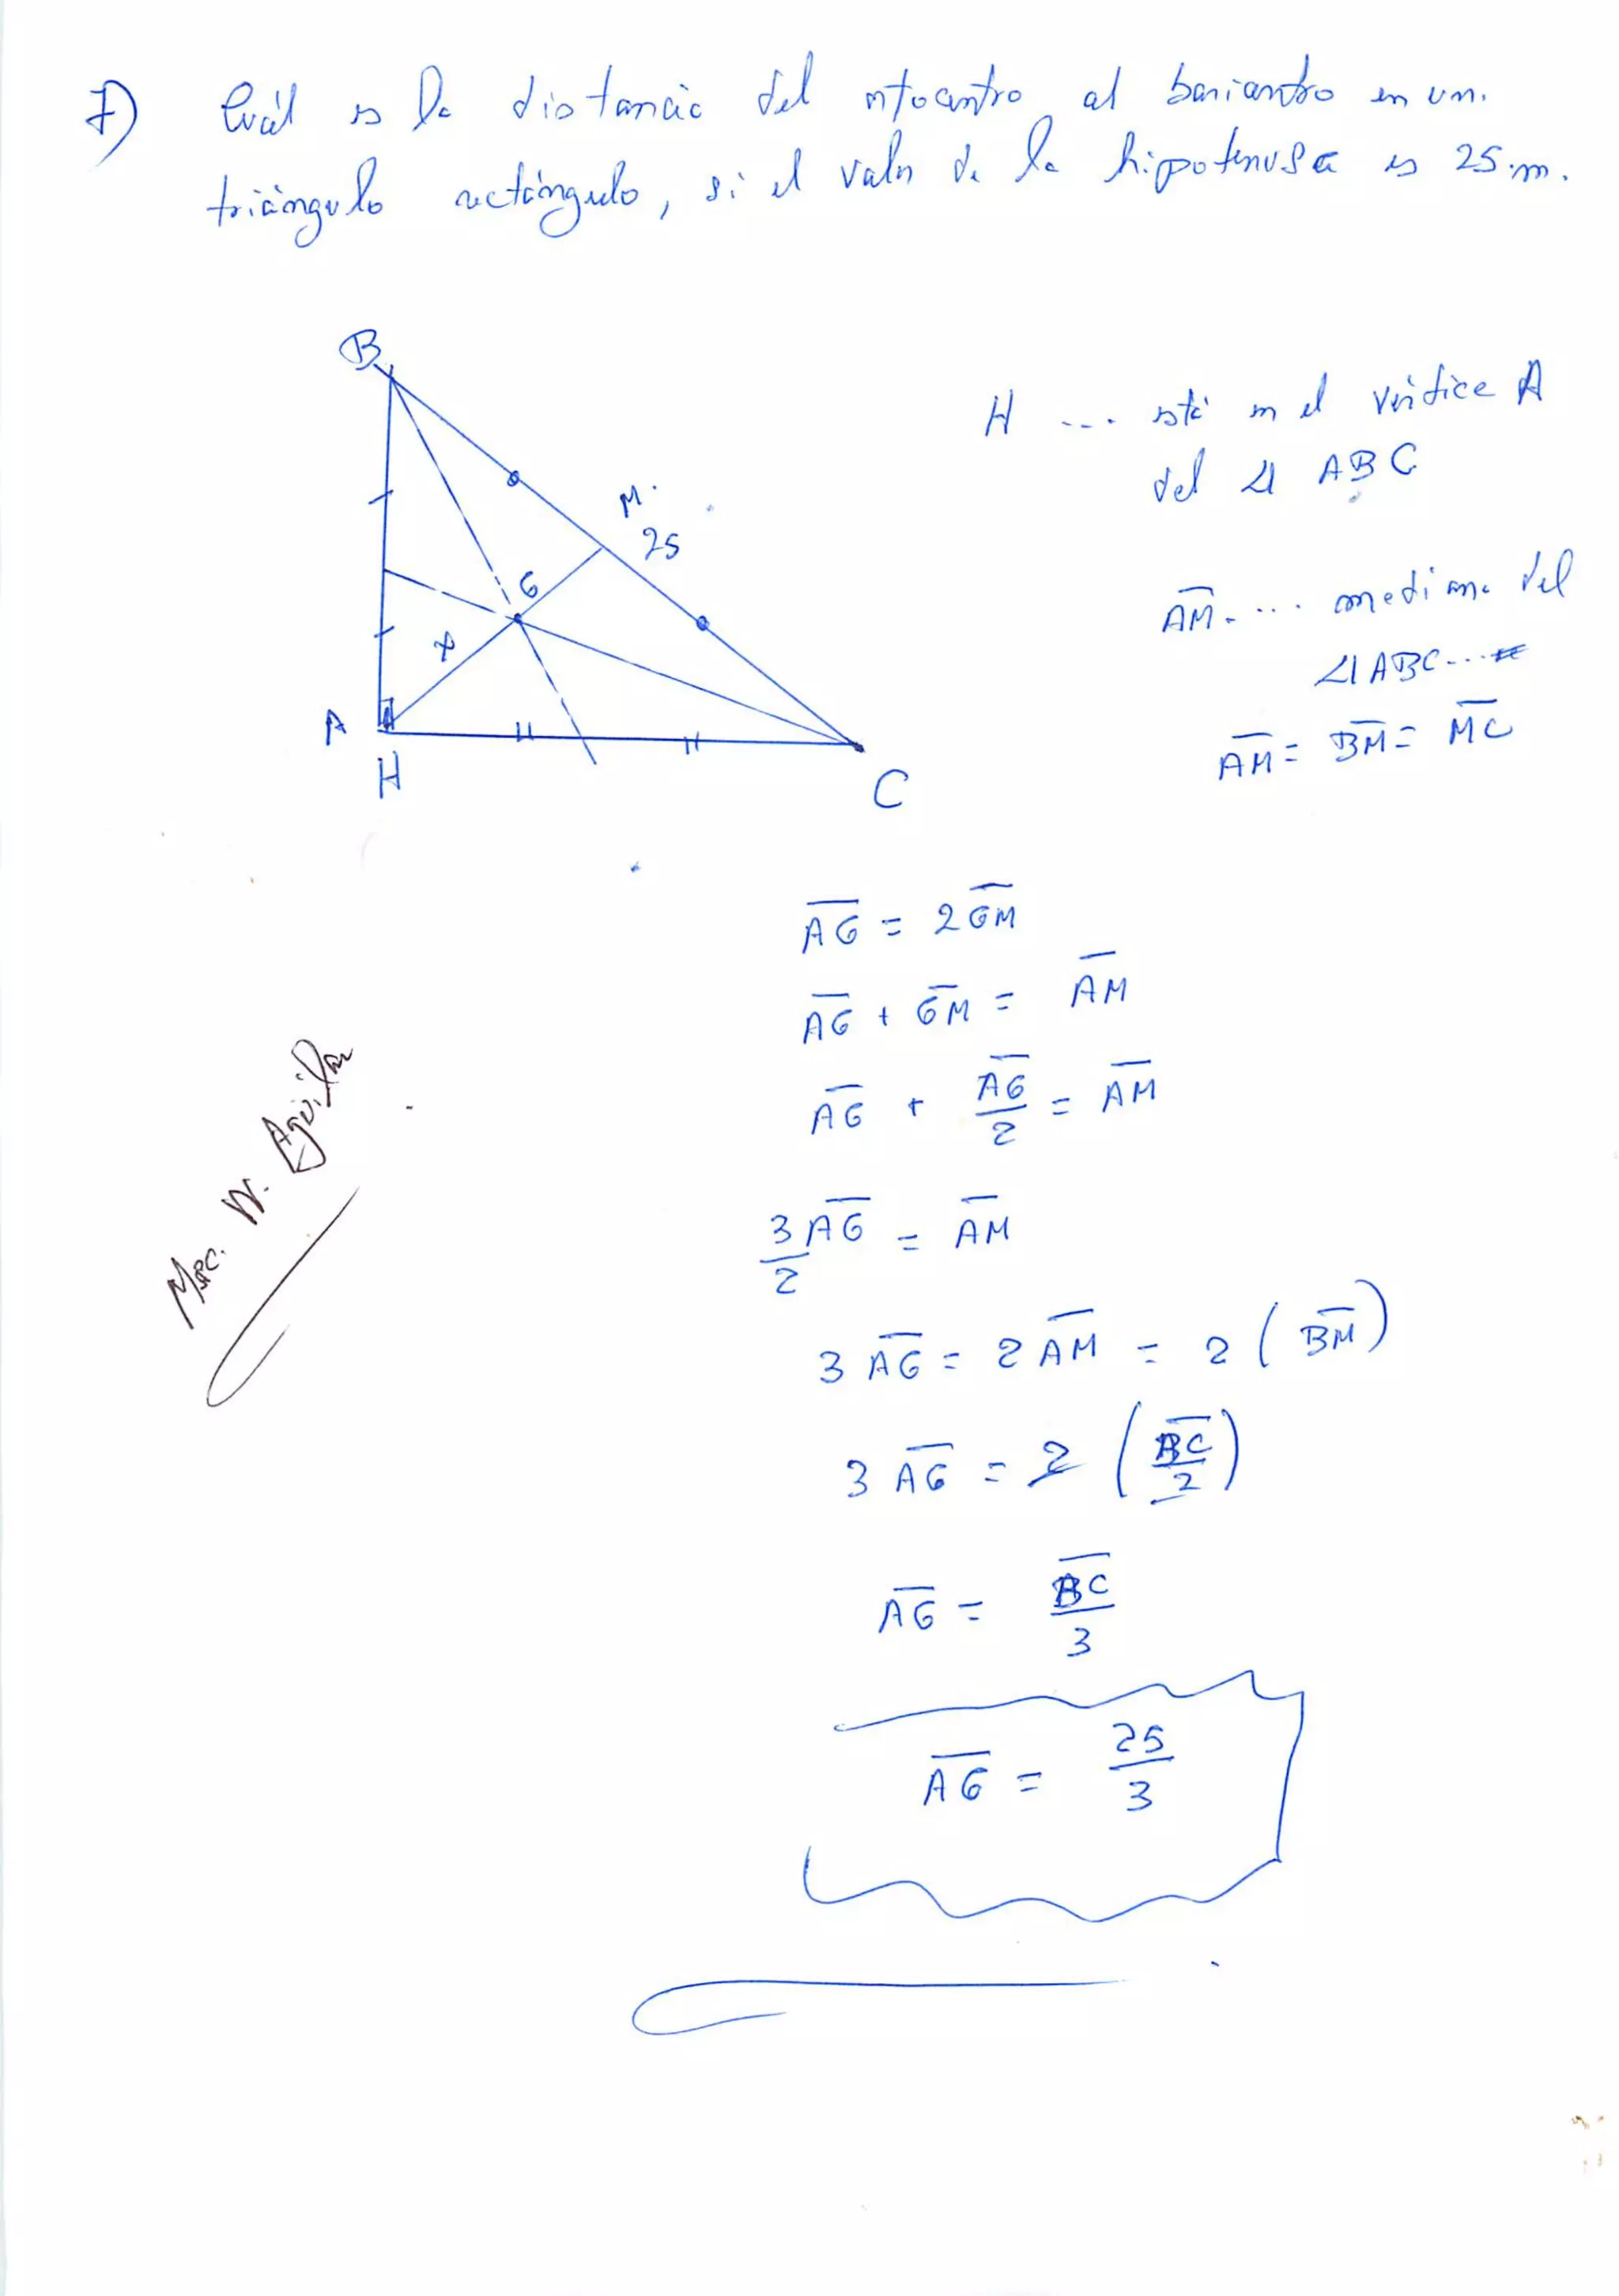 7) Cuál es la distancia del ortocentro al baricentro en un
triángulo rectángulo, si el valor de la hipotenusa es 25 m.
B
H ... está en el vértice A
del ⊿ ABC
M
25
G
x
AM ... mediana del
⊿ ABC ...
A
H
C
AM = BM = MC
AG = 2 GM
AG + GM = AM
AG + AG/2 = AM
3/2 AG = AM
3 AG = 2 AM = 2 (BM)
3 AG = 2 (BC/2)
AG = BC/3
AG = 25/3
Msc. W. Aguilar